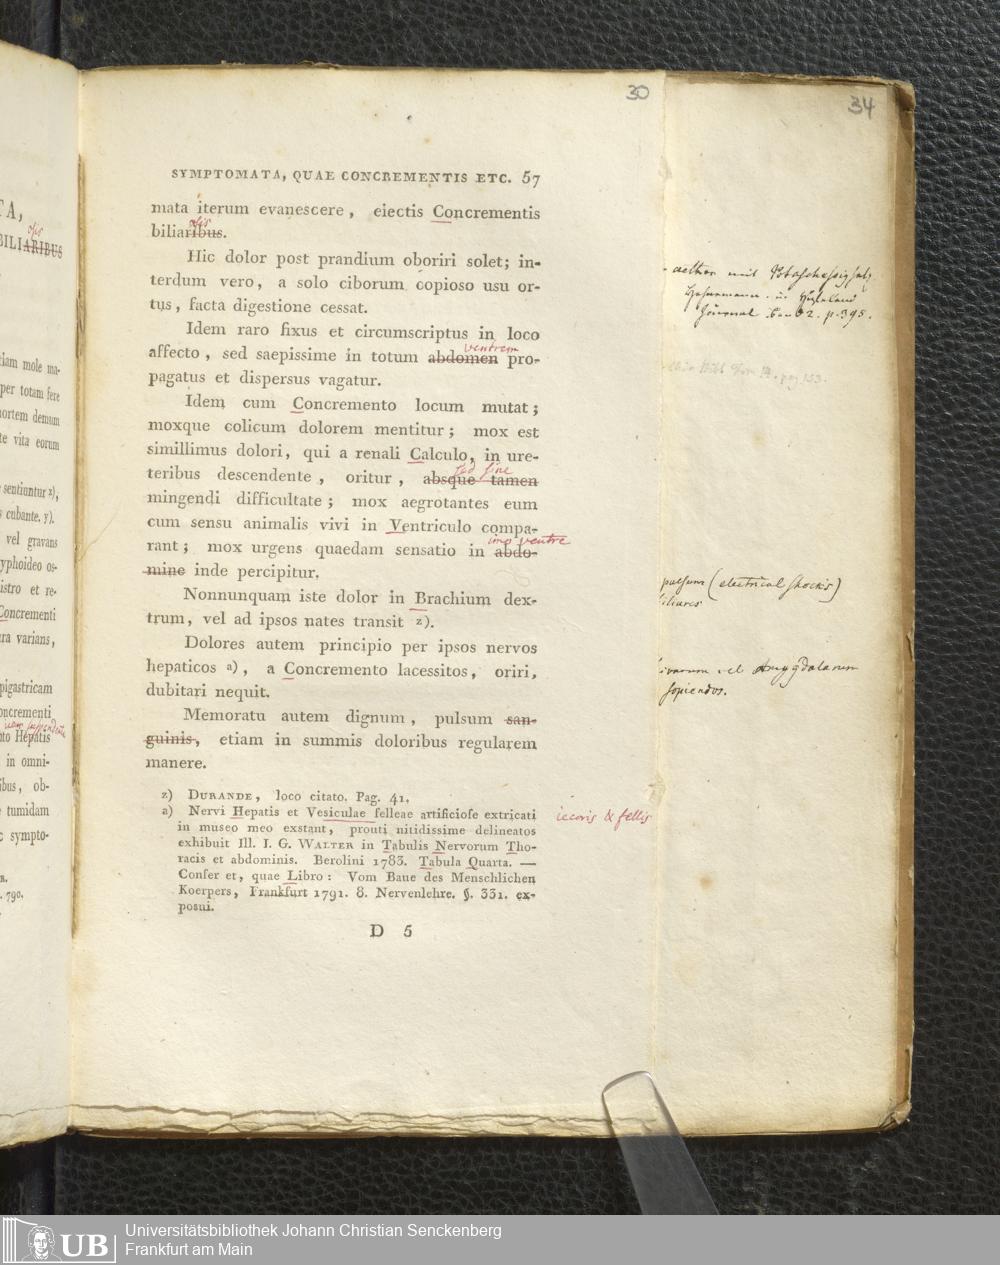 30
34
SYMPTOMATA, QUAE CONCREMENTIS ETC. 57
mata iterum evanescere, eiectis Concrementis
biliaribus.
osis
Hic dolor post prandium oboriri solet; in-
terdum vero, a solo ciborum copioso usu or-
tus, facta digestione cessat.
Idem raro fixus et circumscriptus in loco
ventrem
affecto, sed saepissime in totum abdomen pro-
pagatus et dispersus vagatur.
Idem cum Concremento locum mutat;
moxque colicum dolorem mentitur; mox est
simillimus dolori, qui a renali Calculo, in ure-
sed sine
teribus descendente, oritur, absque tamen
mingendi difficultate; mox aegrotantes eum
cum sensu animalis vivi in Ventriculo compa-
imo ventre
rant; mox urgens quaedam sensatio in abdo-
mine inde percipitur.
Nonnunquam iste dolor in Brachium dex-
trum, vel ad ipsos nates transit z).
Dolores autem principio per ipsos nervos
hepaticos a), a Concremento lacessitos, oriri,
dubitari nequit.
Memoratu autem dignum, pulsum san-
guinis, etiam in summis doloribus regularem
manere.
z) DURANDE, loco citato. Pag. 41.
a) Nervi Hepatis et Vesiculae felleae artificiose extricati
iecoris & fellis
in museo meo exstant, prouti nitidissime delineatos
exhibuit Ill. I. G. WALTER in Tabulis Nervorum Tho-
racis et abdominis. Berolini 1783. Tabula Quarta. —
Confer et, quae Libro: Vom Baue des Menschlichen
Koerpers, Frankfurt 1791. 8. Nervenlehre. §. 331. ex-
posui.
D 5
aether mit
in Hufeland
Journal 2. p. 395.
pag 153.
pulsum (electrical shocks)
biliares
vel Amygdalarum
sopiendos.
TA,
osis
BILIARIBUS
tiam mole ma-
per totam fere
mortem demum
te vita eorum
sentiuntur x),
cubante. y).
vel gravans
yphoideo os-
istro et re-
Concrementi
ra varians,
pigastricam
oncrementi
ito Hepatis
in omni-
ibus, ob-
tumidam
c sympto-
. 790.
UB
Universitätsbibliothek Johann Christian Senckenberg
Frankfurt am Main